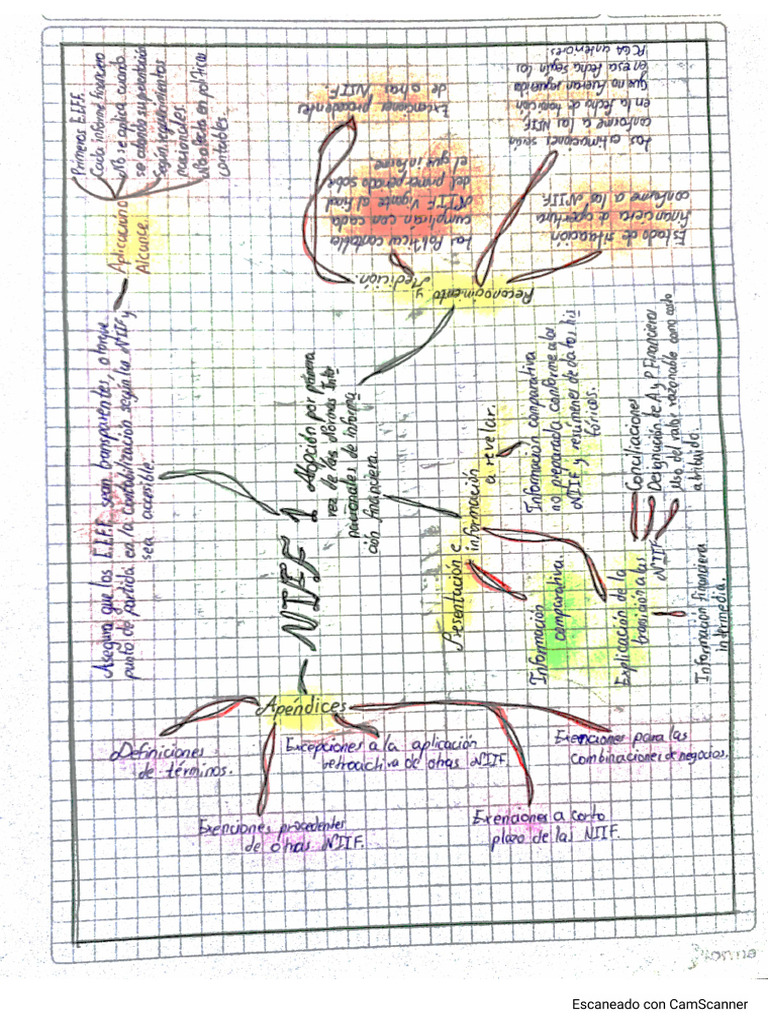 NIIF 1
Adopción por primera
vez de las Normas Inte
nacionales de Informa
ción financiera.
Asegura que los EEFF sean transparentes, otorgue
punto de partida en la contabilización según la NIIF y
sea accesible.
Aplicación
Alcance.
Primeros EEFF
Cada informe financiero
No se aplica cuando
se
según requerimientos
nacionales.
en políticas
contables.
Reconocimiento y
Medición.
Exenciones procedentes
de otras NIIF
Las Políticas contable
cumplirán con cada
NIIF Vigente al final
del primer periodo sobre
el que informe.
Las estimaciones según
conforme a las NIIF
en la fecha de transición
Que no fueran requerida
en esa fecha según los
PCGA anteriores.
Estado de situación
financiera de apertura
conforme a las NIIF
Presentación e
información
a revelar.
Información comparativa
no preparada conforme a las
NIIF y resúmenes de datos his
tóricos.
Información
comparativa
Explicación de la
transición a las
NIIF
Conciliaciones
Designación de A y P Financiera
Uso del valor razonable como costo
atribuido.
Información financiera
intermedia.
Apéndices
Definiciones
de términos.
Exenciones procedentes
de otras NIIF.
Excepciones a la aplicación
retroactiva de otras NIIF.
Exenciones a corto
plazo de las NIIF.
Exenciones para las
combinaciones de negocios.
norma
Escaneado con CamScanner